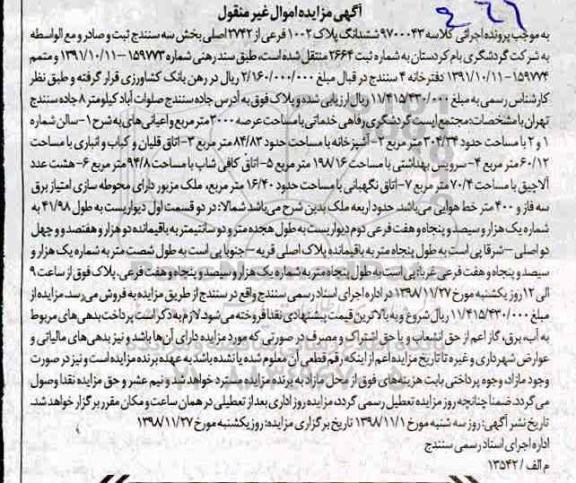 آگهی مزایده اموال غیر منقول
به موجب پرونده اجرائی کلاسه ۹۷۰۰۰۴۳ ششدانگ پلاک ۱۰۰۲ فرعی از ۲۷۴۲ اصلی بخش سه سنندج ثبت و صادر و مع الواسطه
به شرکت گردشگری بام کردستان به شماره ثبت ۲۶۶۴ منتقل شده است، طبق سند رهنی شماره ۱۵۹۷۷۳-۱۳۹۱/۱۰/۱۱ و متمم
۱۵۹۷۷۴-۱۳۹۱/۱۰/۱۱ دفترخانه ۴ سنندج در قبال مبلغ ۲/۱۶۰/۰۰۰/۰۰۰ ریال در رهن بانک کشاورزی قرار گرفته و طبق نظر
کارشناس رسمی به مبلغ ۱۱/۴۱۵/۴۳۰/۰۰۰ ریال ارزیابی شده و پلاک فوق به آدرس جاده سنندج صلوات آباد کیلومتر ۸ جاده سنندج
تهران با مشخصات: مجتمع ایست گردشگری رفاهی خدماتی با مساحت عرصه ۳۰۰۰ متر مربع و اعیانی های به شرح ۱-سالن شماره
۱ و ۲ با مساحت حدود ۳۰۴/۳۴ متر مربع ۲-آشپزخانه با مساحت حدود ۸۴/۸۳ متر مربع ۳-اتاق قلیان و کباب و انباری با مساحت
۶۰/۱۲ متر مربع ۴-سرویس بهداشتی با مساحت ۱۹۸/۱۶ متر مربع ۵-اتاق کافی شاپ با مساحت ۹۴/۸ متر مربع ۶-هشت عدد
آلاچیق با مساحت ۷۰/۴ متر مربع ۷-اتاق نگهبانی با مساحت حدود ۱۶/۴۰ متر مربع، ملک مزبور دارای محوطه سازی امتیاز برق
سه فاز و ۴۰۰ متر خط هوایی می‌باشد. حدود اربعه ملک بدین شرح می‌باشد شمالا: در دو قسمت اول دیواریست به طول ۴۱/۹۸ به
شماره یک هزار و سیصد و پنجاه و هفت فرعی دوم دیواریست به طول هجده متر و دو سانتیمتر به باقیمانده دو هزار و هفتصد و چهل
دو اصلی -شرقا پی است به طول پنجاه متر به باقیمانده پلاک اصلی قریه -جنوبا پی است به طول شصت متر به شماره یک هزار و
سیصد و پنجاه و هفت فرعی غربا: پی است به طول پنجاه متر به شماره یک هزار و سیصد و پنجاه و هفت فرعی. پلاک فوق از ساعت ۹
الی ۱۲ روز یکشنبه مورخ ۱۳۹۸/۱۱/۲۷ در اداره اجرای اسناد رسمی سنندج واقع در سنندج از طریق مزایده به فروش می‌رسد. مزایده از
مبلغ ۱۱/۴۱۵/۴۳۰/۰۰۰ ریال شروع و به بالاترین قیمت پیشنهادی نقدا فروخته می‌شود. لازم به ذکر است پرداخت بدهی های مربوط
به آب، برق، گاز اعم از حق انشعاب و یا حق اشتراک و مصرف در صورتی که مورد مزایده دارای آن‌ها باشد و نیز بدهی های مالیاتی و
عوارض شهرداری و غیره تا تاریخ مزایده اعم از اینکه رقم قطعی آن معلوم شده یا نشده باشد به عهده برنده مزایده است و نیز در صورت
وجود مازاد، وجوه پرداختی بابت هزینه‌های فوق از محل مازاد به برنده مزایده مسترد خواهد شد و نیم عشر و حق مزایده نقدا وصول
می‌گردد. ضمنا چنانچه روز مزایده تعطیل رسمی گردد، مزایده روز اداری بعد از تعطیلی در همان ساعت و مکان مقرر برگزار خواهد شد.
تاریخ نشر آگهی: روز سه شنبه مورخ ۱۳۹۸/۱۱/۱ تاریخ برگزاری مزایده: روز یکشنبه مورخ ۱۳۹۸/۱۱/۲۷
اداره اجرای اسناد رسمی سنندج
م الف / ۱۳۵۴۲